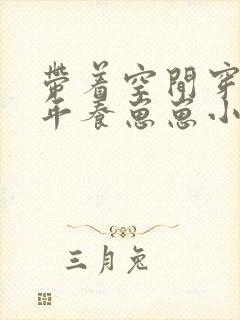 帶着空間穿
年養崽崽小
三月兔